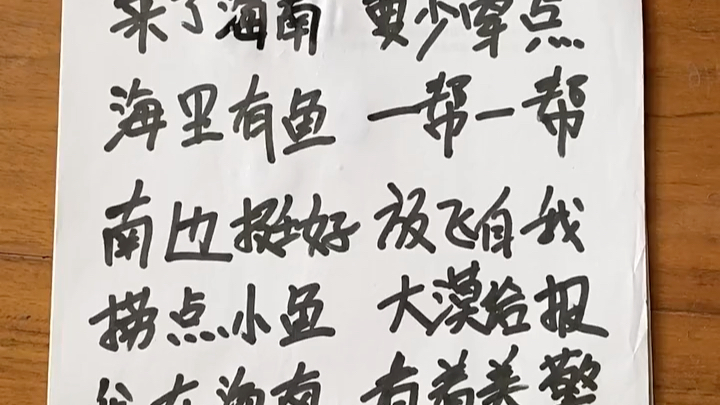 来了海南 要少穿点
海里有鱼 一帮一帮
南边挺好 放飞自我
捞点小鱼 大漠给报
在海南 有着美警